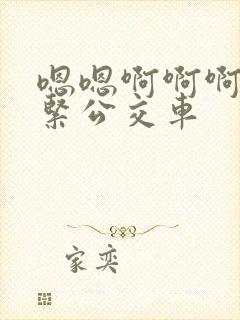 嗯嗯啊啊啊
紧公交车
家奕